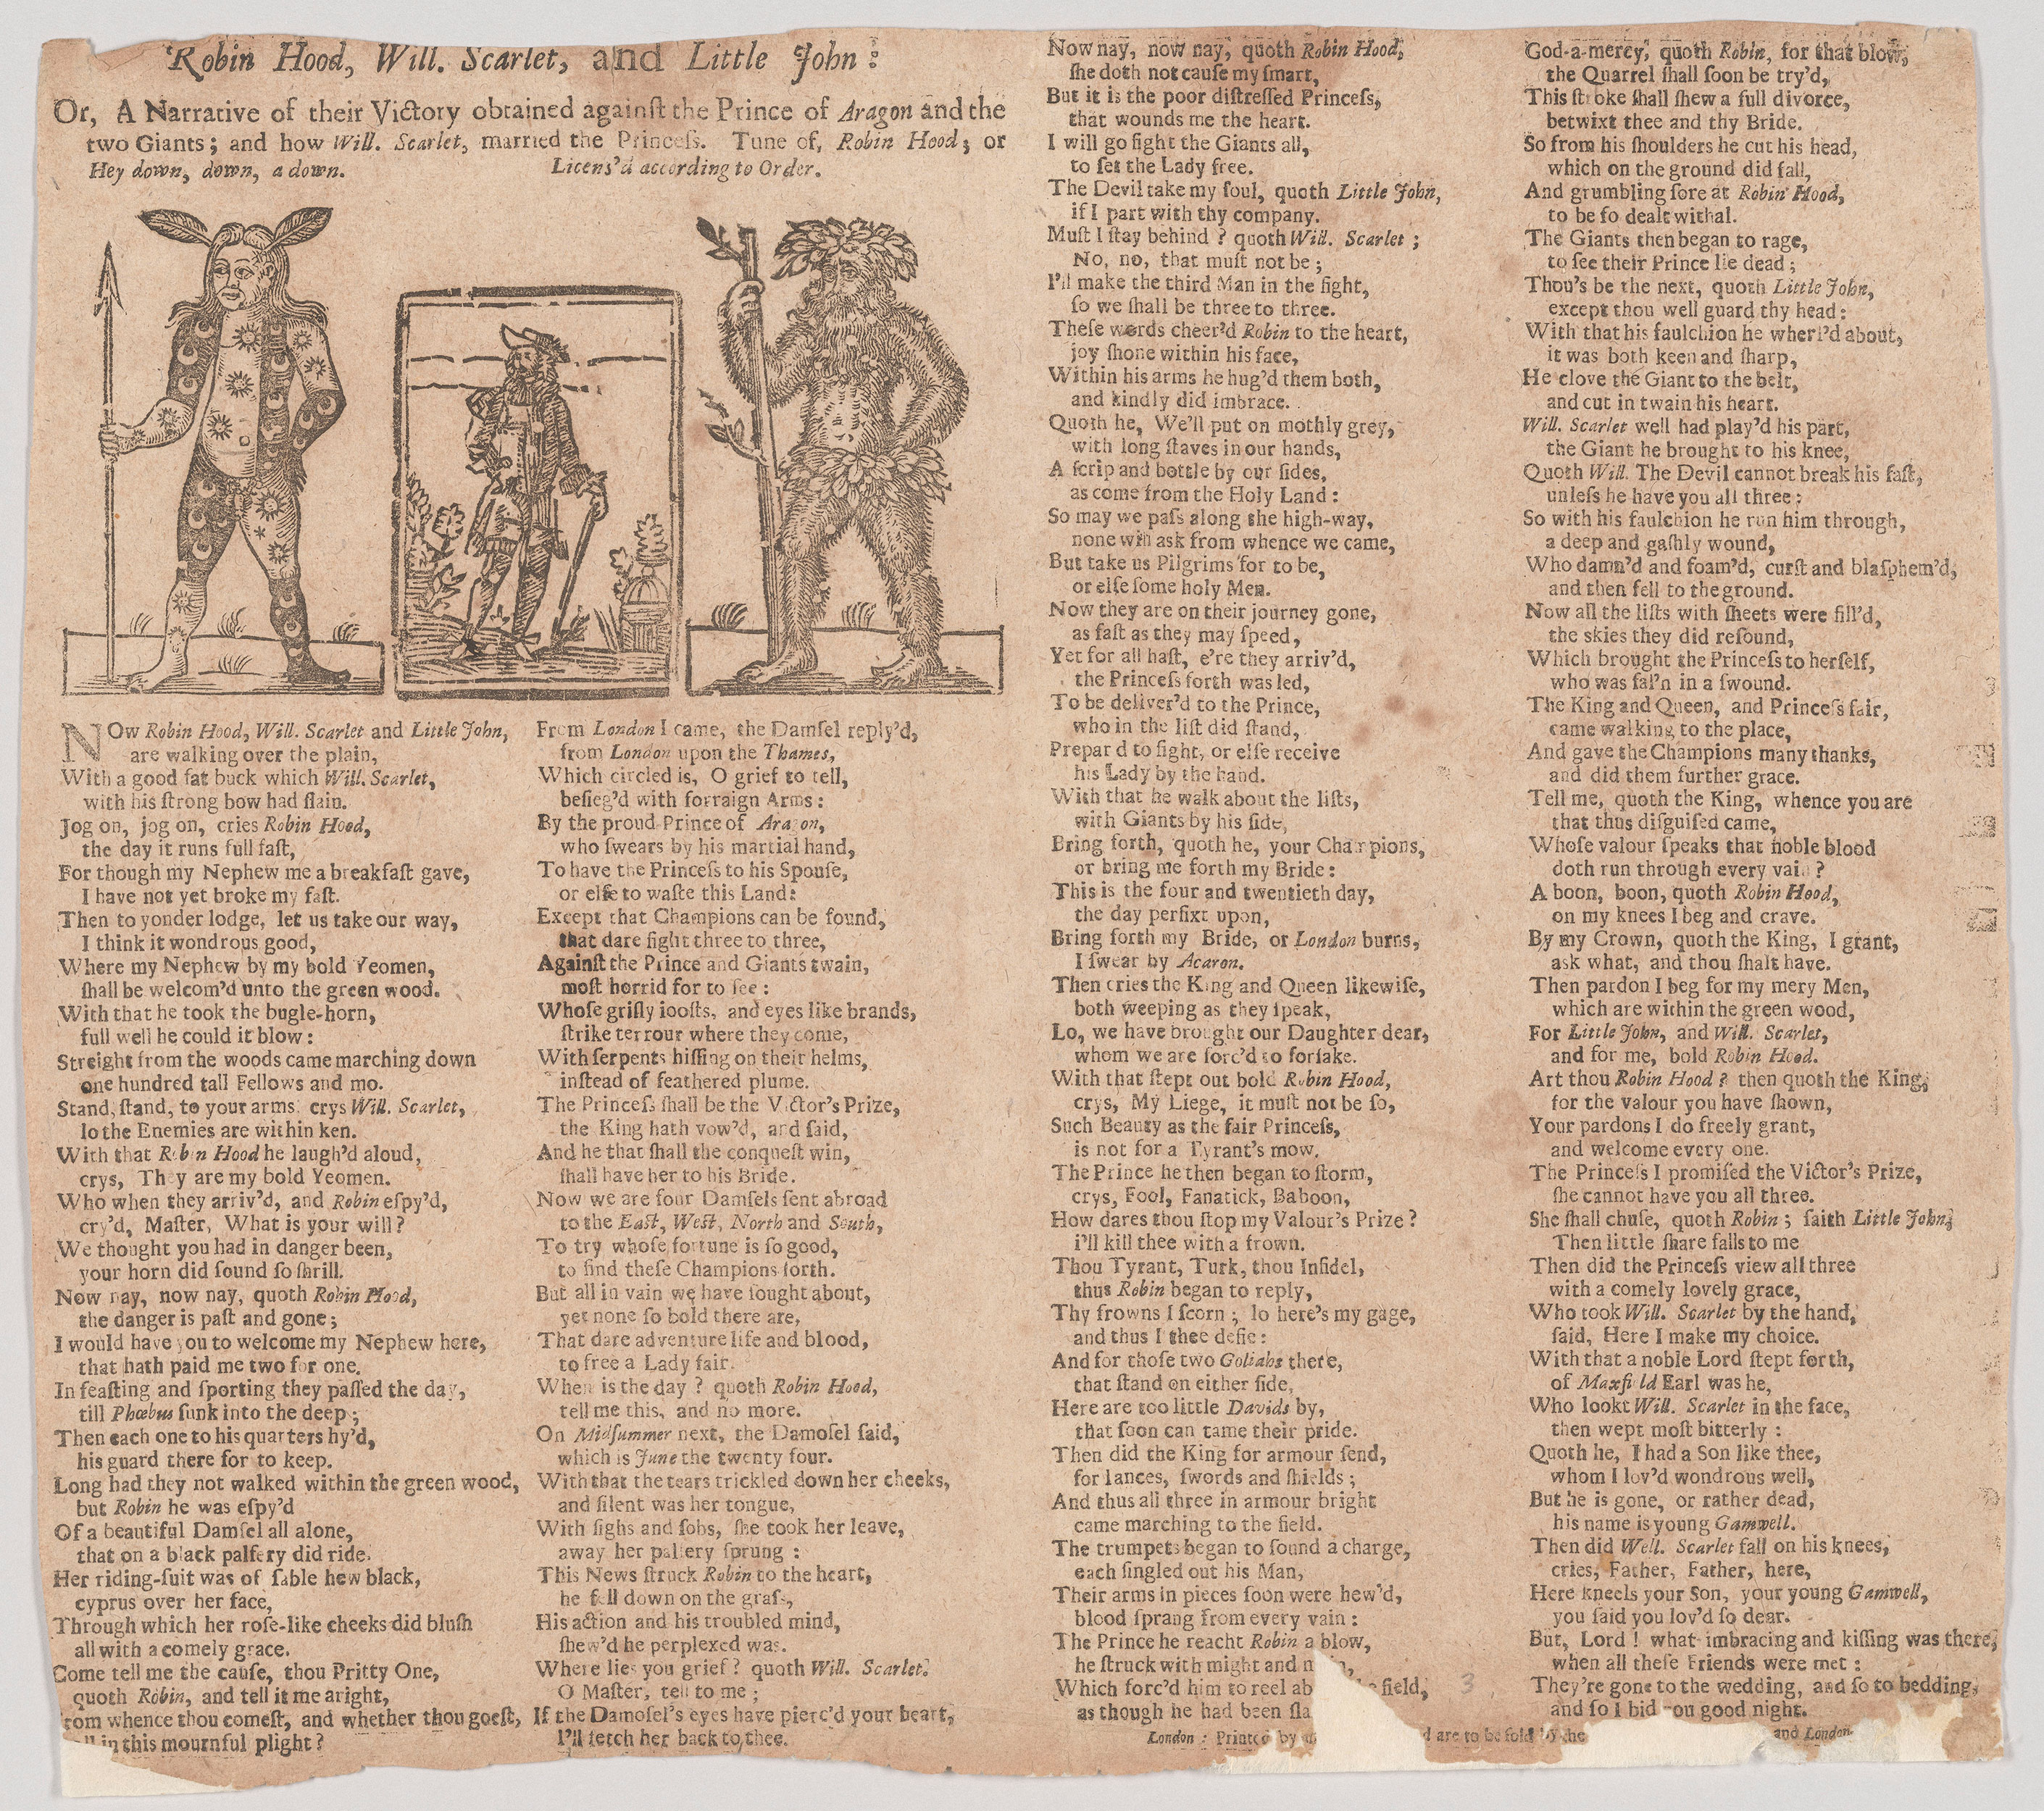 Robin Hood, Will. Scarlet, and Little John:
Or, A Narrative of their Victory obtained against the Prince of Aragon and the
two Giants; and how Will. Scarlet, married the Princeſs. Tune of, Robin Hood; or
Hey down, down, a down. Licens'd according to Order.
NOw Robin Hood, Will. Scarlet and Little John,
are walking over the plain,
With a good fat buck which Will. Scarlet,
with his ſtrong bow had ſlain.
Jog on, jog on, cries Robin Hood,
the day it runs full faſt,
For though my Nephew me a breakfaſt gave,
I have not yet broke my faſt.
Then to yonder lodge, let us take our way,
I think it wondrous good,
Where my Nephew by my bold Yeomen,
ſhall be welcom'd unto the green wood.
With that he took the bugle-horn,
full well he could it blow:
Streight from the woods came marching down
one hundred tall Fellows and mo.
Stand, ſtand, to your arms crys Will. Scarlet,
lo the Enemies are within ken.
With that Robin Hood he laugh'd aloud,
crys, They are my bold Yeomen.
Who when they arriv'd, and Robin eſpy'd,
cry'd, Maſter, What is your will?
We thought you had in danger been,
your horn did ſound ſo ſhrill.
Now nay, now nay, quoth Robin Hood,
the danger is paſt and gone;
I would have you to welcome my Nephew here,
that hath paid me two for one.
In feaſting and ſporting they paſſed the day,
till Phœbus ſunk into the deep;
Then each one to his quarters hy'd,
his guard there for to keep.
Long had they not walked within the green wood,
but Robin he was eſpy'd
Of a beautiful Damſel all alone,
that on a black palfery did ride.
Her riding-ſuit was of ſable hew black,
cyprus over her face,
Through which her roſe-like cheeks did bluſh
all with a comely grace.
Come tell me the cauſe, thou Pritty One,
quoth Robin, and tell it me aright,
rom whence thou comeſt, and whether thou goeſt,
ll in this mournful plight?
From London I came, the Damſel reply'd,
from London upon the Thames,
Which circled is, O grief to tell,
beſieg'd with forraign Arms:
By the proud Prince of Aragon,
who ſwears by his martial hand,
To have the Princeſs to his Spouſe,
or elſe to waſte this Land:
Except that Champions can be found,
that dare fight three to three,
Againſt the Prince and Giants twain,
moſt horrid for to ſee:
Whoſe griſly looſts, and eyes like brands,
ſtrike terrour where they come,
With ſerpents hiſſing on their helms,
inſtead of feathered plume.
The Princeſs ſhall be the Victor's Prize,
the King hath vow'd, and ſaid,
And he that ſhall the conqueſt win,
ſhall have her to his Bride.
Now we are four Damſels ſent abroad
to the Eaſt, Weſt, North and South,
To try whoſe fortune is ſo good,
to find theſe Champions forth.
But all in vain we have ſought about,
yet none ſo bold there are,
That dare adventure life and blood,
to free a Lady fair.
When is the day? quoth Robin Hood,
tell me this, and no more.
On Midſummer next, the Damoſel ſaid,
which is June the twenty four.
With that the tears trickled down her cheeks,
and ſilent was her tongue,
With ſighs and ſobs, ſhe took her leave,
away her palfery ſprung:
This News ſtruck Robin to the heart,
he fell down on the graſs,
His action and his troubled mind,
ſhew'd he perplexed was.
Where lies you grief? quoth Will. Scarlet.
O Maſter, tell to me;
If the Damoſel's eyes have pierc'd your heart,
I'll fetch her back to thee.
Now nay, now nay, quoth Robin Hood,
ſhe doth not cauſe my ſmart,
But it is the poor diſtreſſed Princeſs,
that wounds me the heart.
I will go fight the Giants all,
to ſet the Lady free.
The Devil take my ſoul, quoth Little John,
if I part with thy company.
Muſt I ſtay behind? quoth Will. Scarlet;
No, no, that muſt not be;
I'll make the third Man in the fight,
ſo we ſhall be three to three.
Theſe words cheer'd Robin to the heart,
joy ſhone within his face,
Within his arms he hug'd them both,
and kindly did imbrace.
Quoth he, We'll put on mothly grey,
with long ſtaves in our hands,
A ſcrip and bottle by our ſides,
as come from the Holy Land:
So may we paſs along the high-way,
none will ask from whence we came,
But take us Pilgrims for to be,
or elſe ſome holy Men.
Now they are on their journey gone,
as faſt as they may ſpeed,
Yet for all haſt, e're they arriv'd,
the Princeſs forth was led,
To be deliver'd to the Prince,
who in the liſt did ſtand,
Prepar d to fight, or elſe receive
his Lady by the hand.
With that he walk about the liſts,
with Giants by his ſide,
Bring forth, quoth he, your Champions,
or bring me forth my Bride:
This is the four and twentieth day,
the day perfixt upon,
Bring forth my Bride, or London burns,
I ſwear by Acaron.
Then cries the King and Queen likewiſe,
both weeping as they ſpeak,
Lo, we have brought our Daughter dear,
whom we are forc'd to forſake.
With that ſtept out bold Robin Hood,
crys, My Liege, it muſt not be ſo,
Such Beauty as the fair Princeſs,
is not for a Tyrant's mow.
The Prince he then began to ſtorm,
crys, Fool, Fanatick, Baboon,
How dares thou ſtop my Valour's Prize?
i'll kill thee with a frown.
Thou Tyrant, Turk, thou Infidel,
thus Robin began to reply,
Thy frowns I ſcorn; lo here's my gage,
and thus I thee defie:
And for thoſe two Goliahs there,
that ſtand on either ſide,
Here are too little Davids by,
that ſoon can tame their pride.
Then did the King for armour ſend,
for lances, ſwords and ſhields;
And thus all three in armour bright
came marching to the field.
The trumpets began to ſound a charge,
each ſingled out his Man,
Their arms in pieces ſoon were hew'd,
blood ſprang from every vain:
The Prince he reacht Robin a blow,
he ſtruck with might and
Which forc'd him to reel field,
as though he had been
London: Printed by d are to be ſold by the and London
God-a-mercy, quoth Robin, for that blow,
the Quarrel ſhall ſoon be try'd,
This ſtroke ſhall ſhew a full divorce,
betwixt thee and thy Bride.
So from his ſhoulders he cut his head,
which on the ground did fall,
And grumbling ſore at Robin Hood,
to be ſo dealt withal.
The Giants then began to rage,
to ſee their Prince lie dead;
Thou's be the next, quoth Little John,
except thou well guard thy head:
With that his faulchion he wherl'd about,
it was both keen and ſharp,
He clove the Giant to the belt,
and cut in twain his heart.
Will. Scarlet well had play'd his part,
the Giant he brought to his knee,
Quoth Will. The Devil cannot break his faſt,
unleſs he have you all three:
So with his faulchion he run him through,
a deep and gaſhly wound,
Who damn'd and foam'd, curſt and blaſphem'd,
and then fell to the ground.
Now all the liſts with ſheets were fill'd,
the skies they did reſound,
Which brought the Princeſs to herſelf,
who was fal'n in a ſwound.
The King and Queen, and Princeſs fair,
came walking to the place,
And gave the Champions many thanks,
and did them further grace.
Tell me, quoth the King, whence you are
that thus diſguiſed came,
Whoſe valour ſpeaks that noble blood
doth run through every vain?
A boon, boon, quoth Robin Hood,
on my knees I beg and crave.
By my Crown, quoth the King, I grant,
ask what, and thou ſhalt have.
Then pardon I beg for my mery Men,
which are within the green wood,
For Little John, and Will. Scarlet,
and for me, bold Robin Hood.
Art thou Robin Hood? then quoth the King,
for the valour you have ſhown,
Your pardons I do freely grant,
and welcome every one.
The Princeſs I promiſed the Victor's Prize,
ſhe cannot have you all three.
She ſhall chuſe, quoth Robin; ſaith Little John,
Then little ſhare falls to me
Then did the Princeſs view all three
with a comely lovely grace,
Who took Will. Scarlet by the hand,
ſaid, Here I make my choice.
With that a noble Lord ſtept forth,
of Maxfield Earl was he,
Who lookt Will. Scarlet in the face,
then wept moſt bitterly:
Quoth he, I had a Son like thee,
whom I lov'd wondrous well,
But he is gone, or rather dead,
his name is young Gamwell.
Then did Well. Scarlet fall on his knees,
cries, Father, Father, here,
Here kneels your Son, your young Gamwell,
you ſaid you lov'd ſo dear.
But, Lord! what imbracing and kiſſing was there,
when all theſe Friends were met:
They're gone to the wedding, and ſo to bedding,
and ſo I bid you good night.
3